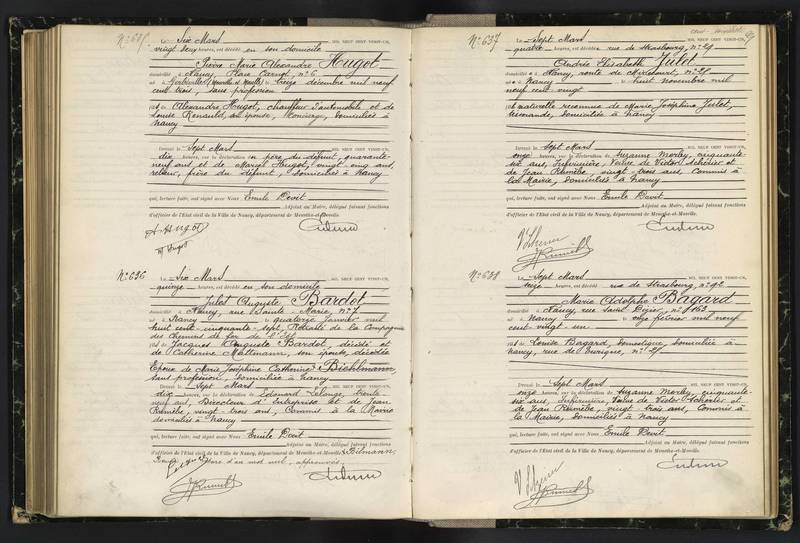 N° 635. Le Six Mars MIL NEUF CENT VINGT-UN,
vingt deux heures, est décédé en son domicile
Pierre Marie Alexandre Hugot
domicilié à Nancy, Place Carnot n° 6
né à Gerbéviller (Meurthe & Mlle) le treize décembre mil neuf
cent trois, sans profession
fils de Alexandre Hugot, chauffeur d'automobile et de
Louise Renauld, son épouse, concierge, domiciliés à
Nancy
Dressé le Sept Mars MIL NEUF CENT VINGT-UN,
dix heures, sur la déclaration du père du défunt, quarante-
neuf ans et de Marcel Hugot, vingt-cinq ans,
frère du défunt, domiciliés à Nancy
qui, lecture faite, ont signé avec Nous Emile Devit
Adjoint au Maire, délégué faisant fonctions
d'officier de l'Etat civil de la Ville de Nancy, département de Meurthe-et-Moselle.
A. Hugot
M Hugot
N° 636 Le Six Mars MIL NEUF CENT VINGT-UN,
quinze heures, est décédé en son domicile
Jules Auguste Bardot
domicilié à Nancy, rue Sainte-Marie, n° 7
né à Nancy le quatorze Janvier mil
huit cent cinquante-sept, Retraité de la Compagnie
des Chemins de fer de l'Est
fils de Jacques Auguste Bardot, décédé et
de Catherine Mattmann, son épouse, décédée
Epoux de Marie Joséphine Catherine Biehlmann,
sans profession, domiciliée à Nancy
Dressé le Sept Mars MIL NEUF CENT VINGT-UN,
dix heures, sur la déclaration de Edouard Lelonge, trente-
neuf ans, Directeur d'Entreprise et de Jean
vingt-trois ans, Commis à la Mairie
domiciliés à Nancy
qui, lecture faite, ont signé avec Nous Emile Devit
Adjoint au Maire, délégué faisant fonctions
d'officier de l'Etat civil de la Ville de Nancy, département de Meurthe-et-Moselle.
d'un mot nul, approuvés.
N° 637 Le Sept Mars MIL NEUF CENT VINGT-UN,
quatre heures, est décédée rue de Strasbourg, n° 94
Andrée Elisabeth Julet
domiciliée à Nancy, route de Mirecourt, n° 25
née à Nancy le huit novembre mil
neuf cent vingt
fille naturelle reconnue de Marie Joséphine Julet,
domiciliée à Nancy
Dressé le Sept Mars MIL NEUF CENT VINGT-UN,
onze heures, sur la déclaration de Suzanne Morley, cinquante-
six ans, Infirmière, Veuve de Victor Scherrer et
de Jean vingt-trois ans, Commis à
la Mairie, domiciliés à Nancy
qui, lecture faite, ont signé avec Nous Emile Devit
Adjoint au Maire, délégué faisant fonctions
d'officier de l'Etat civil de la Ville de Nancy, département de Meurthe-et-Moselle.
N° 638 Le Sept Mars MIL NEUF CENT VINGT-UN,
seize heures, est décédé rue de Strasbourg, n° 92
Marie Adolphe Bagard
domicilié à Nancy, rue Saint Dizier, n° 163
né à Nancy le onze février mil neuf
cent vingt un
fils de Louise Bagard, Domestique, domiciliée à
Nancy, rue de
Dressé le Sept Mars MIL NEUF CENT VINGT-UN,
onze heures, sur la déclaration de Suzanne Morley, cinquante-
six ans, Infirmière, Veuve de Victor Scherrer et
de Jean vingt-trois ans, Commis à
la Mairie, domiciliés à Nancy
qui, lecture faite, ont signé avec Nous Emile Devit
Adjoint au Maire, délégué faisant fonctions
d'officier de l'Etat civil de la Ville de Nancy, département de Meurthe-et-Moselle.